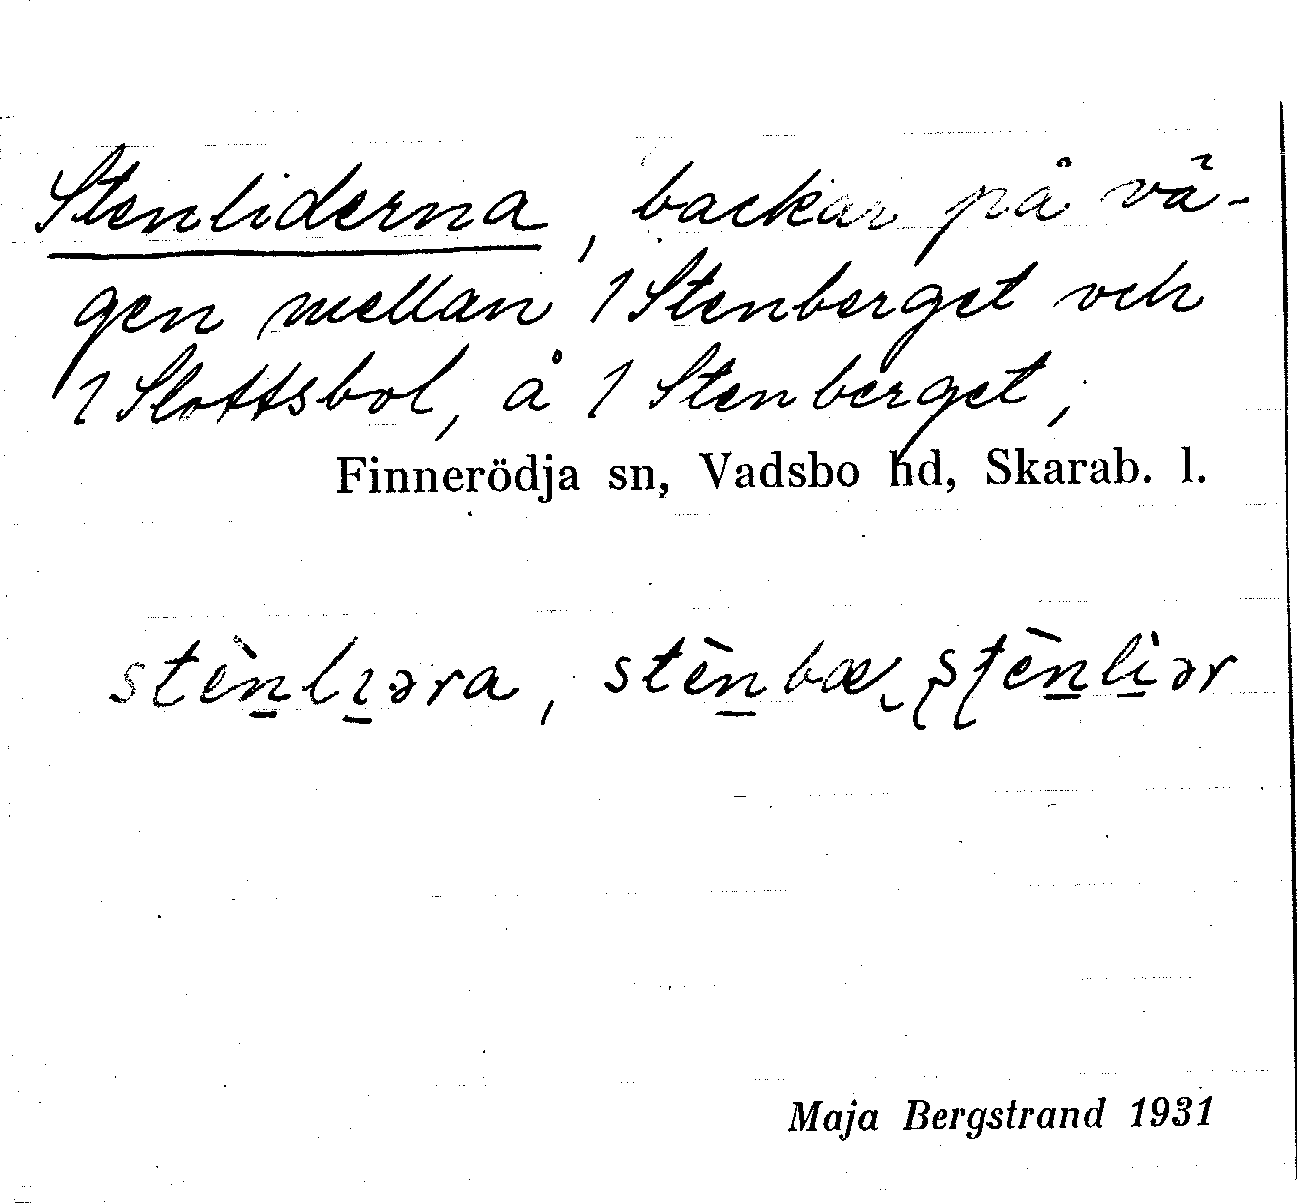 Stenliderna, backar på vä-
gen mellan 1 Stenberget och
1 Slottsbol, å 1 Stenberget,
Finnerödja sn, Vadsbo hd, Skarab. l.
stèn̲lɪ̲əra, stèn̲bæ ʂʈèn̲lì̲ər
Maja Bergstrand 1931